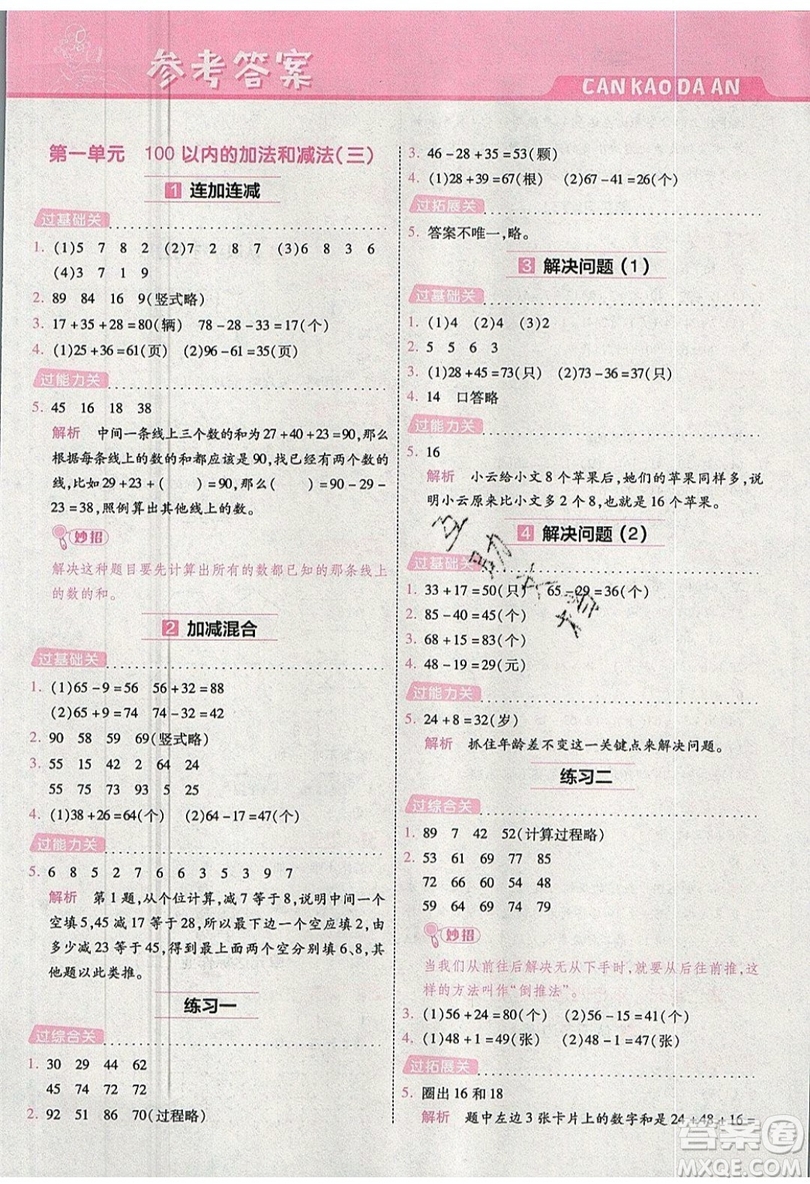 参考答案
CAN KAO DA AN
第一单元 100以内的加法和减法(三)
1 连加连减
过基础关
1. (1)5 7 8 2 (2)7 2 8 7 (3)6 8 3 6
(4)3 7 1 9
2. 89 84 16 9(竖式略)
3. 17+35+28=80(辆) 78-28-33=17(个)
4. (1)25+36=61(页) (2)96-61=35(页)
过能力关
5. 45 16 18 38
解析 中间一条线上三个数的和为27+40+23=90,那么
根据每条线上的数的和都应该是90,( )=90-29-
23=38,照例算出其他线上的数。
妙招
解决这种题目要先计算出所有的数都已知的那条线上
的数的和。
2 加减混合
过基础关
1. (1)65-9=56 56+32=88
(2)65+9=74 74-32=42
2. 90 58 59 69(竖式略)
3. 55 15 24 32
55 75 73 93 5 25
4. (1)38+26=64(个) (2)64-17=47(个)
过能力关
5. 6 8 5 2 7 6 6 3 5 3 9 7
解析 第1题,从个位计算,减7等于8,说明中间一个
空填5,45减17等于28,所以最下边一个空应填2,由
多少减23等于45,得到最上边的两个空分别填6、8,其
他题以此类推。
练习一
过综合关
1. 30 29 44 62
45 74 72 72
2. 92 51 86 70(过程略)
3. 46-28+35=53(颗)
4. (1)28+39=67(根) (2)67-41=26(个)
过拓展关
5. 答案不唯一,略。
3 解决问题(1)
过基础关
1. (1)4 (2)4 (3)2
2. 5 5 6 3
3. (1)28+45=73(只) (2)73-36=37(只)
4. 14 口答略
过能力关
5. 16
解析 小云给小文8个苹果后,她们的苹果同样多,说
明小云原来比小文多2个8,也就是16个苹果。
4 解决问题(2)
过基础关
1. 33+17=50(只) 65-29=36(个)
2. 85-40=45(个)
3. 68+15=83(个)
4. 48-19=29(元)
过能力关
5. 24+8=32(岁)
解析 抓住年龄差不变这一关键点来解决问题。
练习二
过综合关
1. 89 7 42 52(计算过程略)
2. 53 31 60 77 85
72 66 60 54 48
59 64 69 74 79
妙招
当我们从前往后解决无从下手时,就从后往前推,这
样的方法叫作“倒推法”。
3. (1)56+24=80(个) (2)56-15=41(个)
4. (1)48+1=49(张) (2)48-1=47(张)
过拓展关
5. 圈出16和18
解析 题中左边3张卡片上的数字和是24+48+16=
答案圈
MXQE.COM